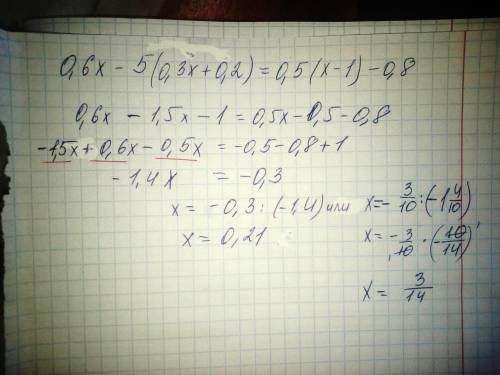 0,6x - 5(0,3x+0,2) = 0,5(x-1) - 0,8
0,6x - 1,5x - 1 = 0,5x - 0,5 - 0,8
-1,5x + 0,6x - 0,5x = -0,5 - 0,8 + 1
-1,4x = -0,3
x = -0,3 : (-1,4) или x = - 3/10 : (-1 4/10)
x = 0,21
x = - 3/10 · (- 10/14)
x = 3/14